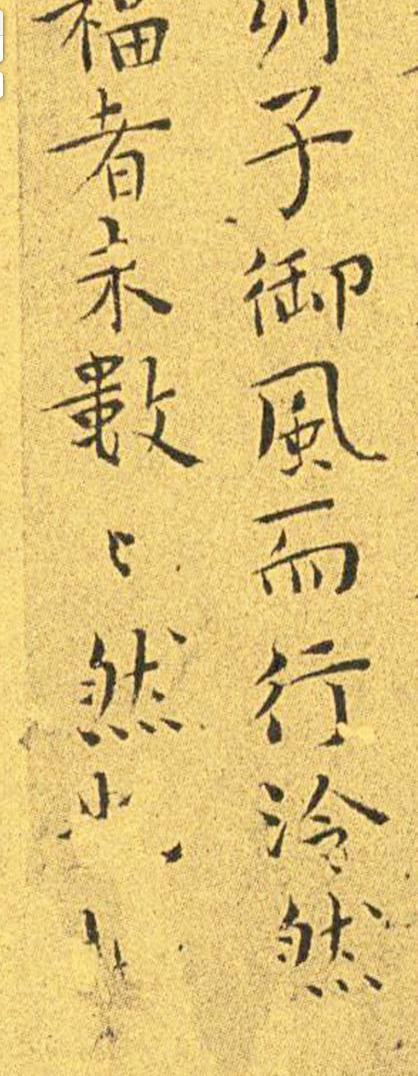 列子御風而行泠然
福者未數〻然